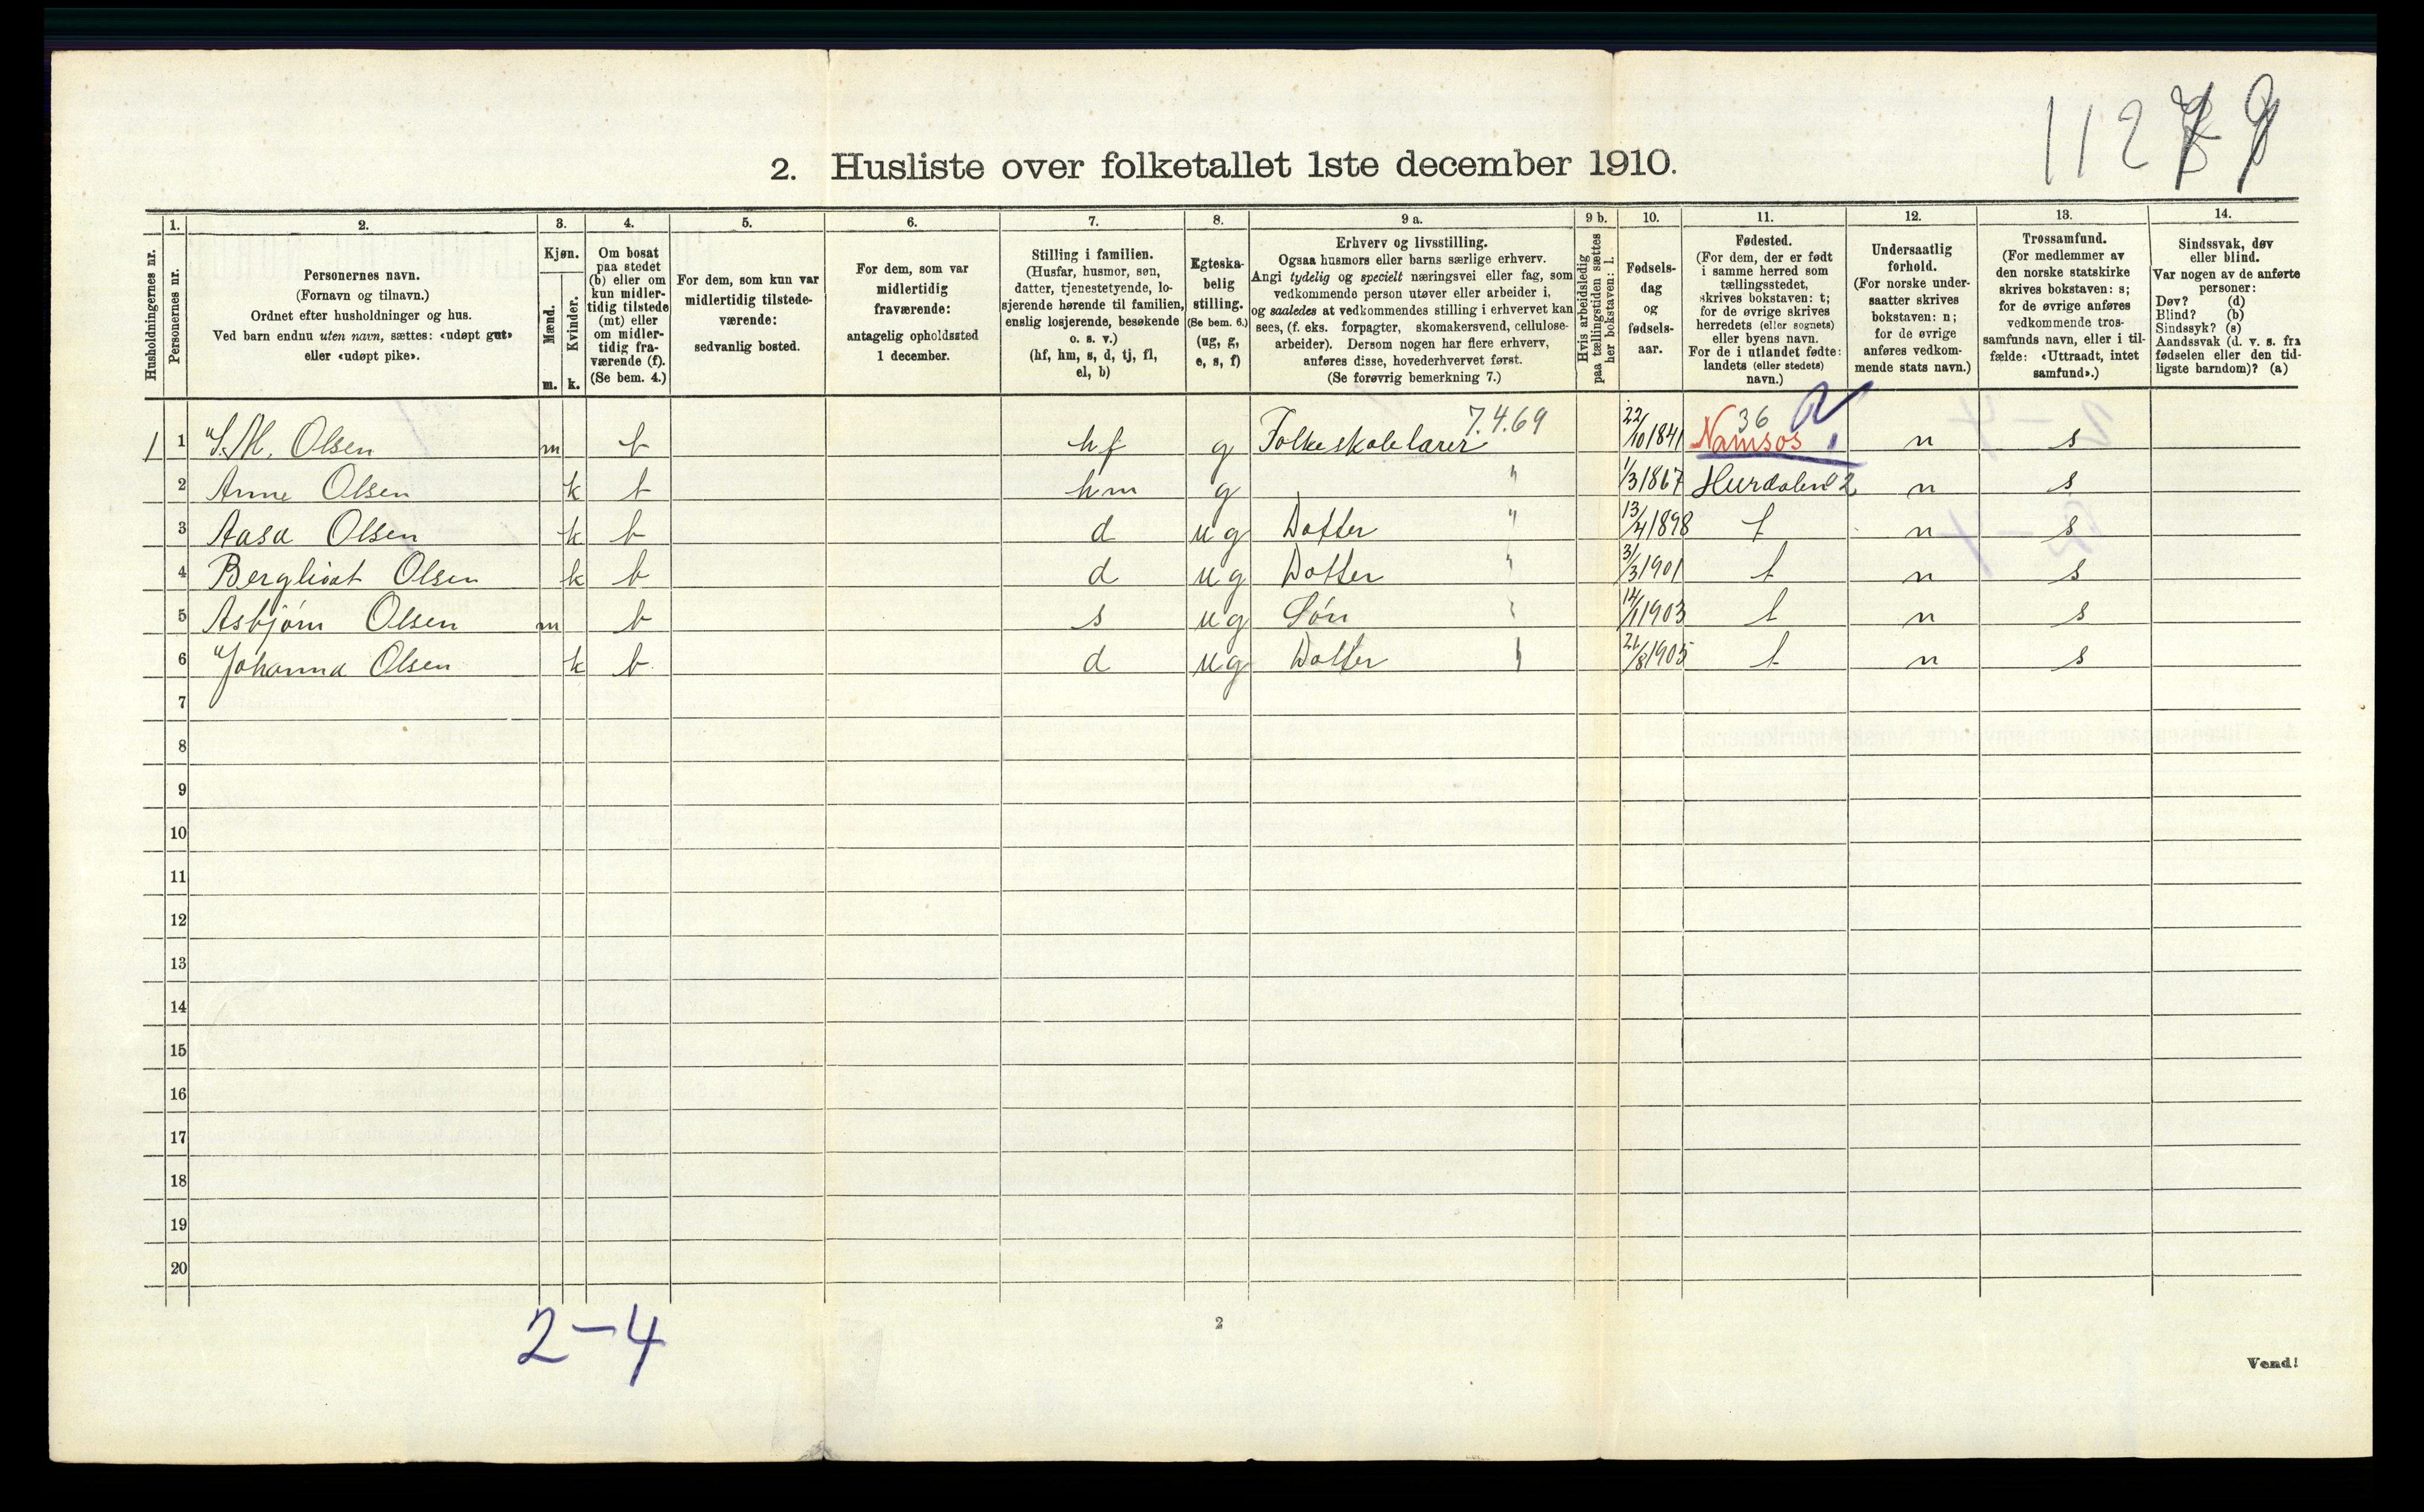 11279
2. Husliste over folketallet 1ste december 1910.
1. 2. 3. 4. 5. 6. 7. 8. 9 a. 9 b. 10. 11. 12. 13. 14.
Husholdningernes nr.
Personernes nr.
Personernes navn.
(Fornavn og tilnavn.)
Ordnet efter husholdninger og hus.
Ved barn endnu uten navn, sættes: «udøpt gut»
eller «udøpt pike».
Kjøn.
Mænd.
Kvinder.
m. k.
Om bosat
paa stedet
(b) eller om
kun midler-
tidig tilstede
(mt) eller
om midler-
tidig fra-
værende (f).
(Se bem. 4.)
For dem, som kun var
midlertidig tilstede-
værende:
sedvanlig bosted.
For dem, som var
midlertidig
fraværende:
antagelig opholdssted
1 december.
Stilling i familien.
(Husfar, husmor, søn,
datter, tjenestetyende, lo-
sjerende hørende til familien,
enslig losjerende, besøkende
o. s. v.)
(hf, hm, s, d, tj, fl,
el, b)
Egteska-
belig
stilling.
(Se bem. 6.)
(ug, g,
e, s, f)
Erhverv og livsstilling.
Ogsaa husmors eller barns særlige erhverv.
Angi tydelig og specielt næringsvei eller fag, som
vedkommende person utøver eller arbeider i,
og saaledes at vedkommendes stilling i erhvervet kan
sees, (f. eks. forpagter, skomakersvend, cellulose-
arbeider). Dersom nogen har flere erhverv,
anføres disse, hovederhvervet først.
(Se forøvrig bemerkning 7.)
Hvis arbeidsledig
paa tællingstiden sættes
her bokstaven: l.
Fødsels-
dag
og
fødsels-
aar.
Fødested.
(For dem, der er født
i samme herred som
tællingsstedet,
skrives bokstaven: t;
for de øvrige skrives
herredets (eller sognets)
eller byens navn.
For de i utlandet fødte:
landets (eller stedets)
navn.)
Undersaatlig
forhold.
(For norske under-
saatter skrives
bokstaven: n;
for de øvrige
anføres vedkom-
mende stats navn.)
Trossamfund.
(For medlemmer av
den norske statskirke
skrives bokstaven: s;
for de øvrige anføres
vedkommende tros-
samfunds navn, eller i til-
fælde: «Uttraadt, intet
samfund».)
Sindssvak, døv
eller blind.
Var nogen av de anførte
personer:
Døv? (d)
Blind? (b)
Sindssyk? (s)
Aandssvak (d. v. s. fra
fødselen eller den tid-
ligste barndom)? (a)
7.4.69 36
1 1 J. M. Olsen m b hf g Folkeskolelærer 22/10 1841 Namsos 1 n s
2 Anne Olsen k b hm g " 1/3 1867 Hurdalen 2 n s
3 Aasa Olsen k b d ug Datter " 13/4 1898 t n s
4 Bergliot Olsen k b d ug Datter " 3/3 1901 t n s
5 Asbjørn Olsen m b s ug Søn " 14/1 1903 t n s
6 Johanna Olsen k b d ug Datter " 21/8 1905 t n s
7
8
9
10
11
12
13
14
15
16
17
18
19
20
2-4
2
Vend!